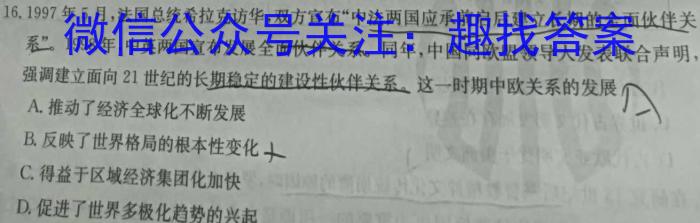 16.1997年5月,法国总统希拉克访华,双方宣布“中法两国应承前启后建立 全面伙伴关
系”。 中 两国宣布发展全面伙伴关系。同年,中国同欧盟领导人发表联合声明,
微信公众号关注：趣找答案
强调建立面向21世纪的长期稳定的建设性伙伴关系。这一时期中欧关系的发展
A.推动了经济全球化不断发展
B.反映了世界格局的根本性变化
C.得益于区域经济集团化加快
D.促进了世界多极化趋势的兴起